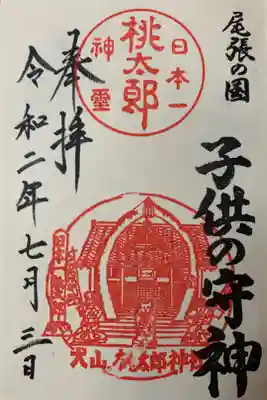 尾張の国
子供の守神
日本一
桃太郎
神霊
奉拝
令和二年七月三日
犬山 桃太郎神社